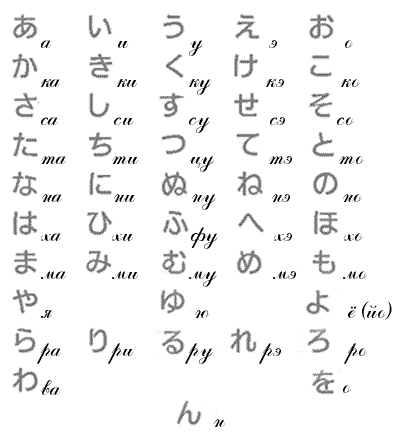 あ а い и う у え э お о
か ка き ки く ку け кэ こ ко
さ са し си す су せ сэ そ со
た та ち ти つ цу て тэ と то
な на に ни ぬ ну ね нэ の но
は ха ひ хи ふ фу へ хэ ほ хо
ま ма み ми む му め мэ も мо
や я ゆ ю よ ё (йо)
ら ра り ри る ру れ рэ ろ ро
わ ва を о
ん н